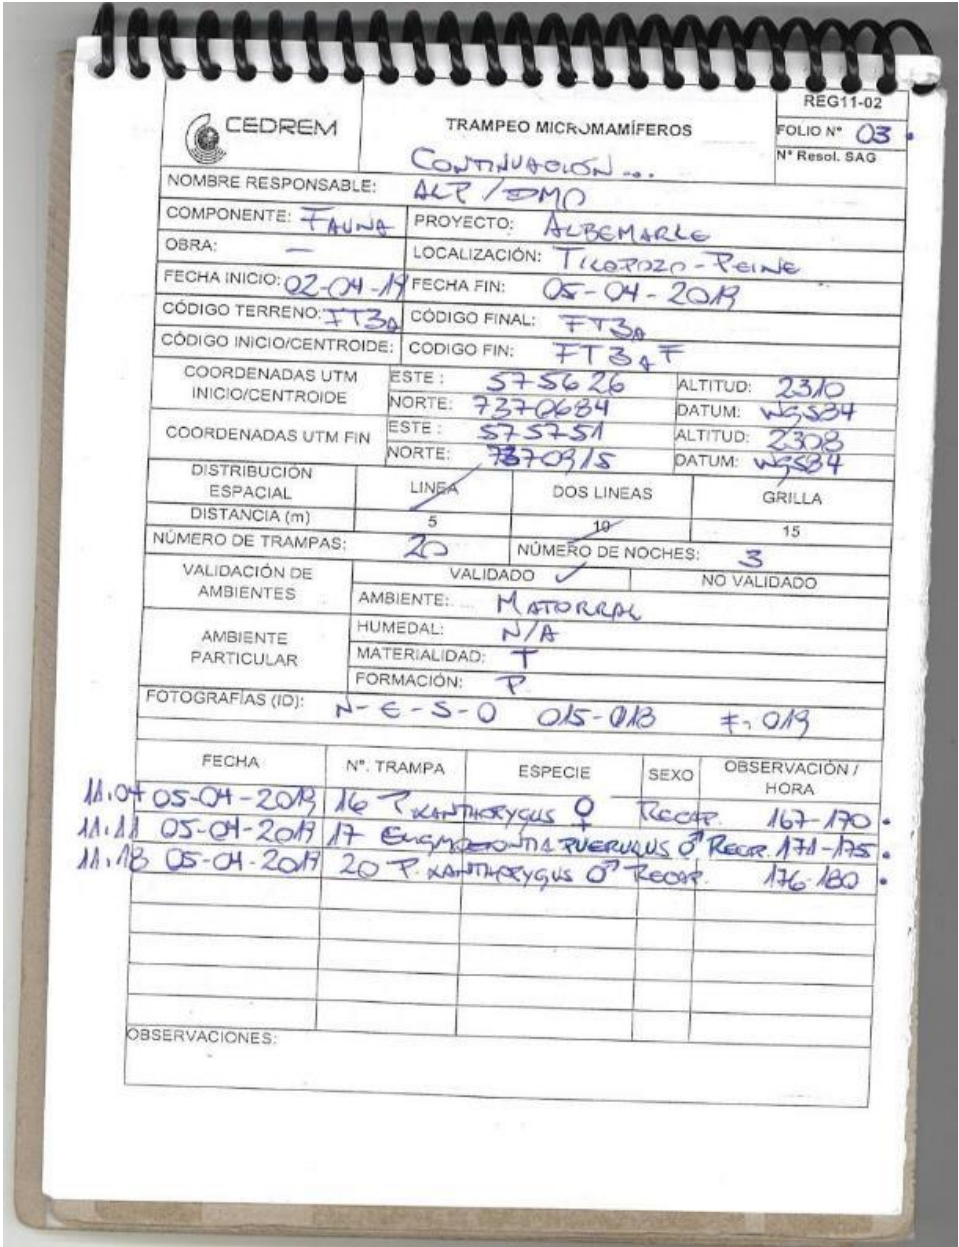 REG11-02
CEDREM
TRAMPEO MICROMAMÍFEROS
FOLIO N° 03
N° Resol. SAG
CONTINUACION ...
NOMBRE RESPONSABLE: ALP / DMO
COMPONENTE: FAUNA PROYECTO: ALBEMARLE
OBRA: — LOCALIZACIÓN: TILOPOZO - PEINE
FECHA INICIO: 02-04-19 FECHA FIN: 05-04-2019
CÓDIGO TERRENO: FT3A CÓDIGO FINAL: FT3A
CÓDIGO INICIO/CENTROIDE: CODIGO FIN: FT3AF
COORDENADAS UTM INICIO/CENTROIDE ESTE: 575626 ALTITUD: 2310
NORTE: 7370684 DATUM: WGS84
COORDENADAS UTM FIN ESTE: 575751 ALTITUD: 2308
NORTE: 7370915 DATUM: WGS84
DISTRIBUCIÓN ESPACIAL LINEA DOS LINEAS GRILLA
DISTANCIA (m) 5 10 15
NÚMERO DE TRAMPAS: 20 NÚMERO DE NOCHES: 3
VALIDACIÓN DE AMBIENTES VALIDADO ✓ NO VALIDADO
AMBIENTE: MATORRAL
AMBIENTE PARTICULAR HUMEDAL: N/A
MATERIALIDAD: T
FORMACIÓN: P
FOTOGRAFÍAS (ID): N-E-S-O 015-018 019
FECHA N°. TRAMPA ESPECIE SEXO OBSERVACIÓN / HORA
11.04 05-04-2019 16 P. XANTHOPYGUS ♀ RECAP. 167-170
11.11 05-04-2019 17 PUERULUS ♂ RECAP. 171-175
11.18 05-04-2019 20 P. XANTHOPYGUS ♂ RECAP. 176-180
OBSERVACIONES: